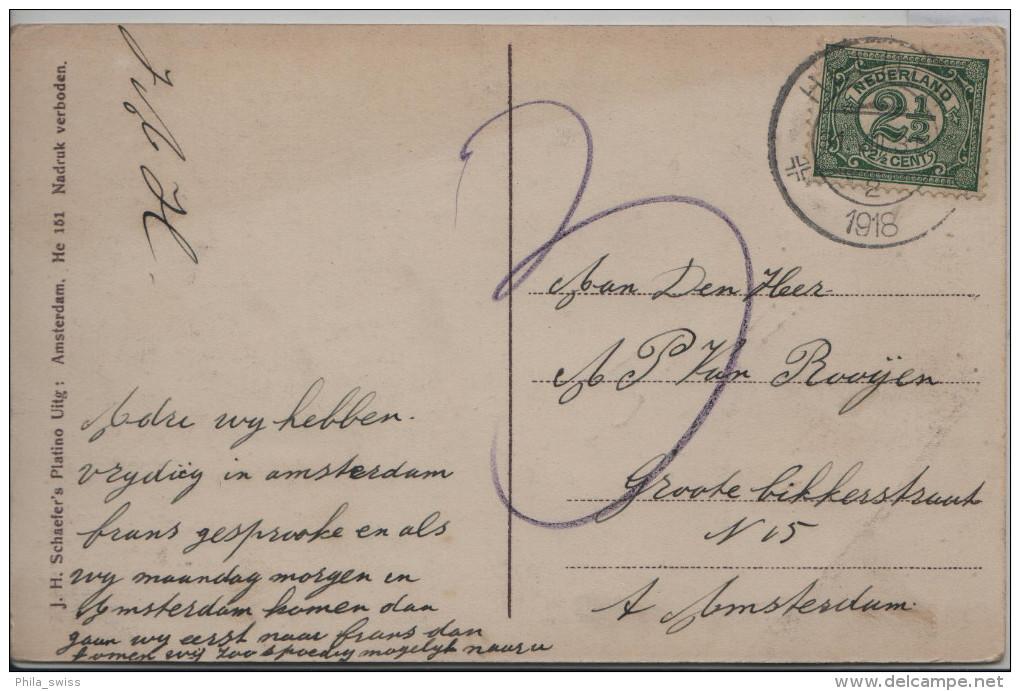 J. H. Schaefer's Platino Uitg: Amsterdam. He 151 Nadruk verboden.
NEDERLAND
2 1/2
2½ CENT
2
1918
3
Aan Den Heer
A P Van Rooÿen
Groote bikkerstraat
N 15
A Amsterdam.
Adri wy hebben
vrydag in amsterdam
frans gesprooke en als
wy maandag morgen in
Amsterdam komen dan
gaan wy eerst naar frans dan
komen wij zoo spoedig mogelyk naar u
Phila_swiss
delcampe.net